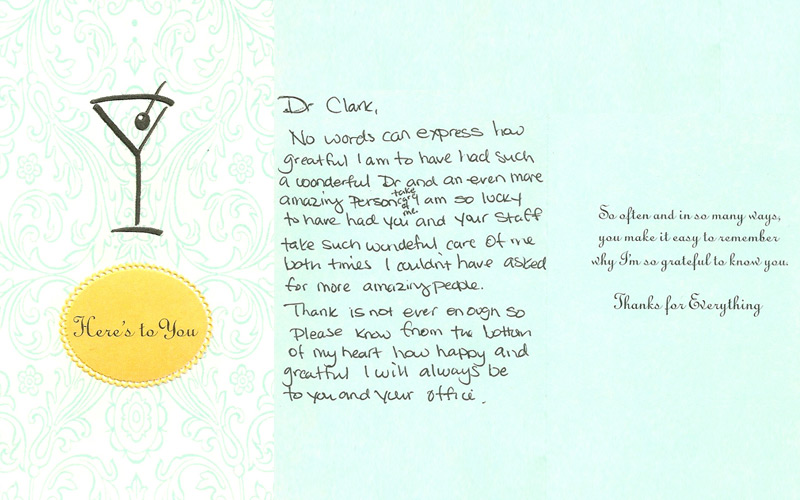 Here's to You
Dr Clark,
No words can express how
greatful I am to have had such
a wonderful Dr and an even more
amazing Person take care of me. I am so lucky
to have had you and your staff
take such wonderful care of me
both times I couldn't have asked
for more amazing people.
Thank is not ever enough so
please know from the bottom
of my heart how happy and
greatful I will always be
to you and your office.
So often and in so many ways,
you make it easy to remember
why I'm so grateful to know you.
Thanks for Everything